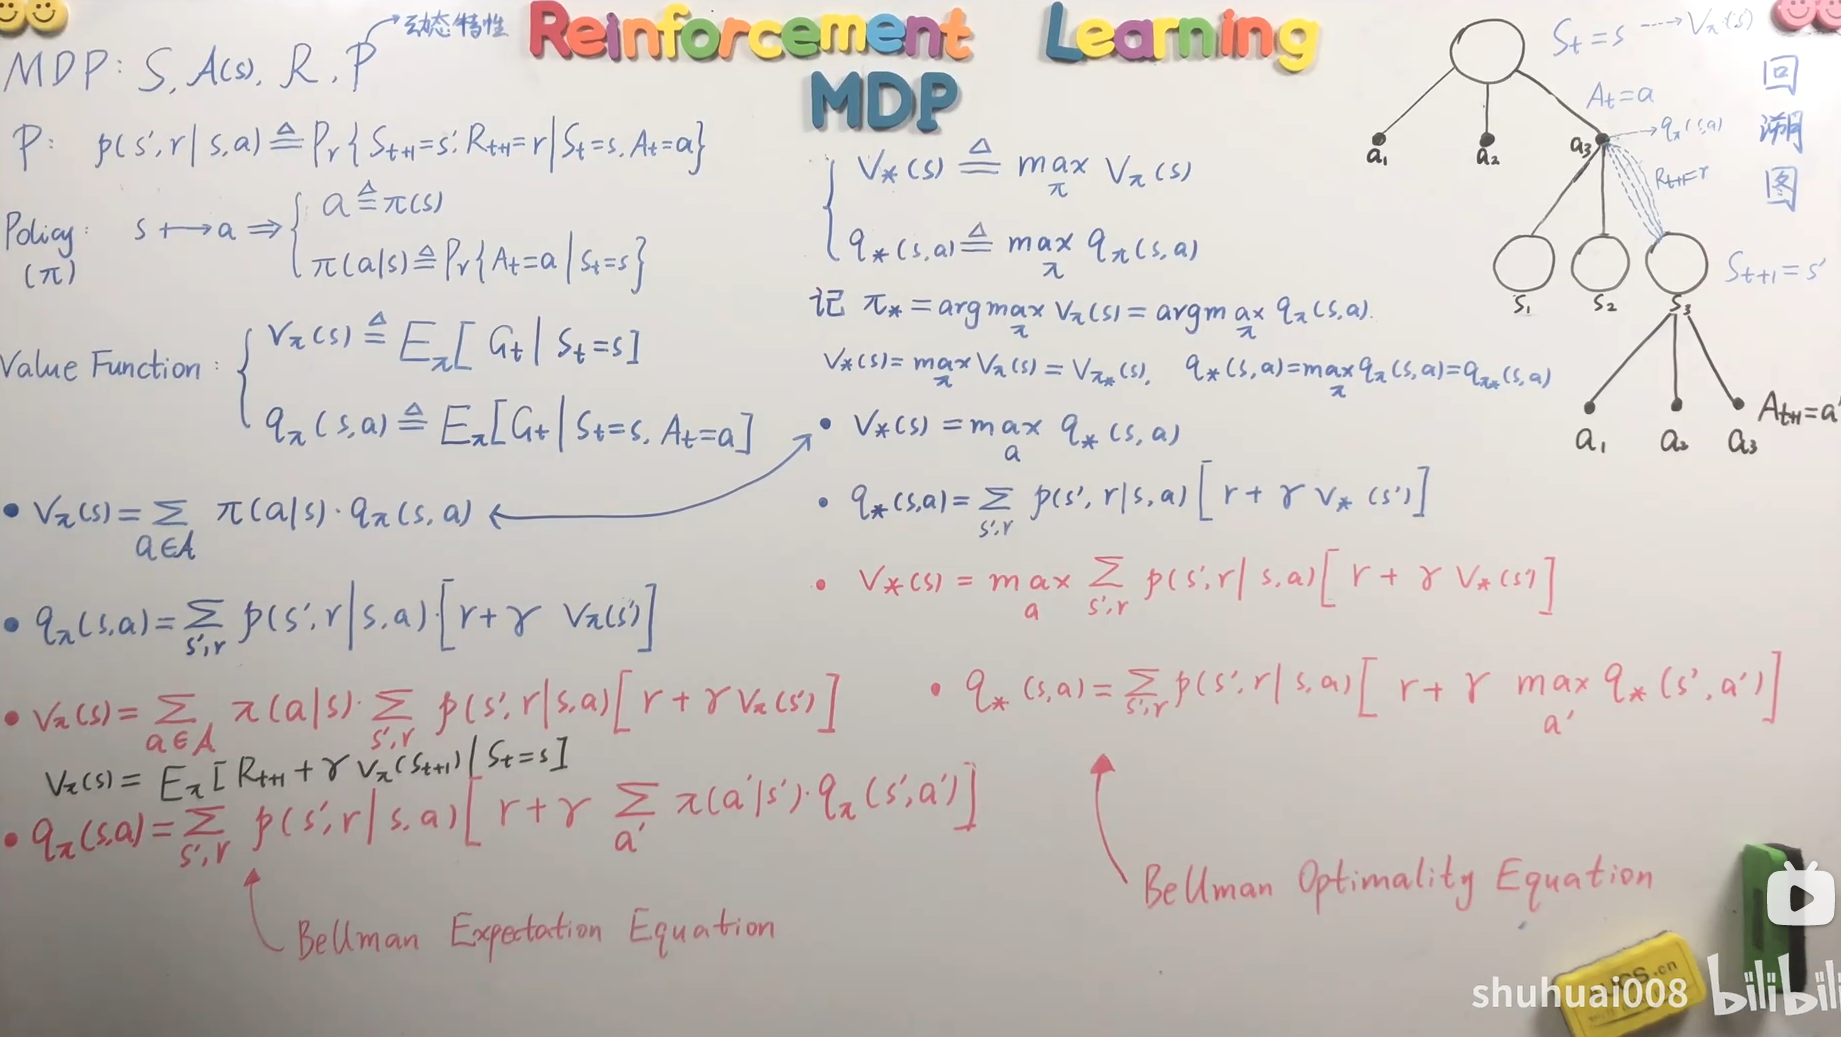 Reinforcement Learning
MDP
MDP: S, A(s), R, P → 动态特性
P: p(s',r|s,a) ≜ Pr{St+1=s', Rt+1=r|St=s, At=a}
Policy: (π) s ↦ a ⇒ { a ≜ π(s)
π(a|s) ≜ Pr{At=a|St=s}
Value Function: { Vπ(s) ≜ Eπ[Gt|St=s]
qπ(s,a) ≜ Eπ[Gt|St=s, At=a]
• Vπ(s) = Σ a∈A π(a|s)·qπ(s,a)
• qπ(s,a) = Σ s',r p(s',r|s,a)·[r+γ Vπ(s')]
• Vπ(s) = Σ a∈A π(a|s)·Σ s',r p(s',r|s,a)[r+γVπ(s')]
Vπ(s) = Eπ[Rt+1+γVπ(St+1)|St=s]
• qπ(s,a) = Σ s',r p(s',r|s,a)[r+γ Σ a' π(a'|s')·qπ(s',a')]
Bellman Expectation Equation
{ V*(s) ≜ max π Vπ(s)
q*(s,a) ≜ max π qπ(s,a)
记 π* = argmax π Vπ(s) = argmax π qπ(s,a).
V*(s) = max π Vπ(s) = Vπ*(s), q*(s,a) = max π qπ(s,a) = qπ*(s,a)
• V*(s) = max a q*(s,a)
• q*(s,a) = Σ s',r p(s',r|s,a)[r+γ V*(s')]
• V*(s) = max a Σ s',r p(s',r|s,a)[r+γ V*(s')]
• q*(s,a) = Σ s',r p(s',r|s,a)[r+γ max a' q*(s',a')]
Bellman Optimality Equation
St=s → Vπ(s)
回溯图
At=a
a1 a2 a3 → qπ(s,a)
Rt+1=r
St+1=s'
S1 S2 S3
At+1=a'
a1 a2 a3
shuhuai008 bilibili